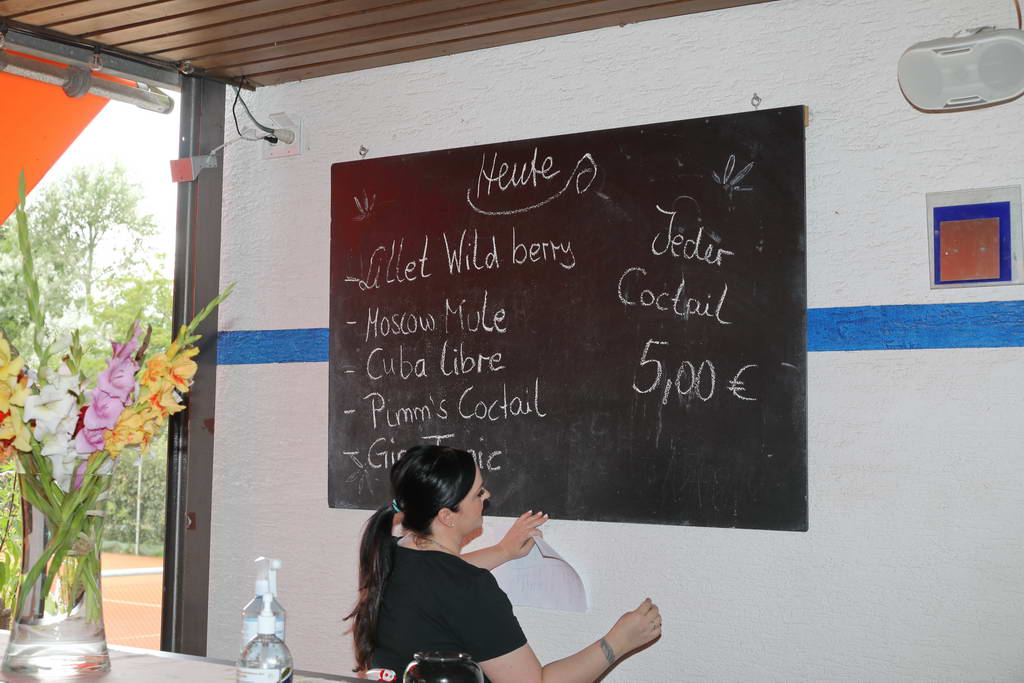 Heute
- Lillet Wild berry
- Moscow Mule
- Cuba libre
- Pimm's Coctail
- Gin Tonic
Jeder
Coctail
5,00 €